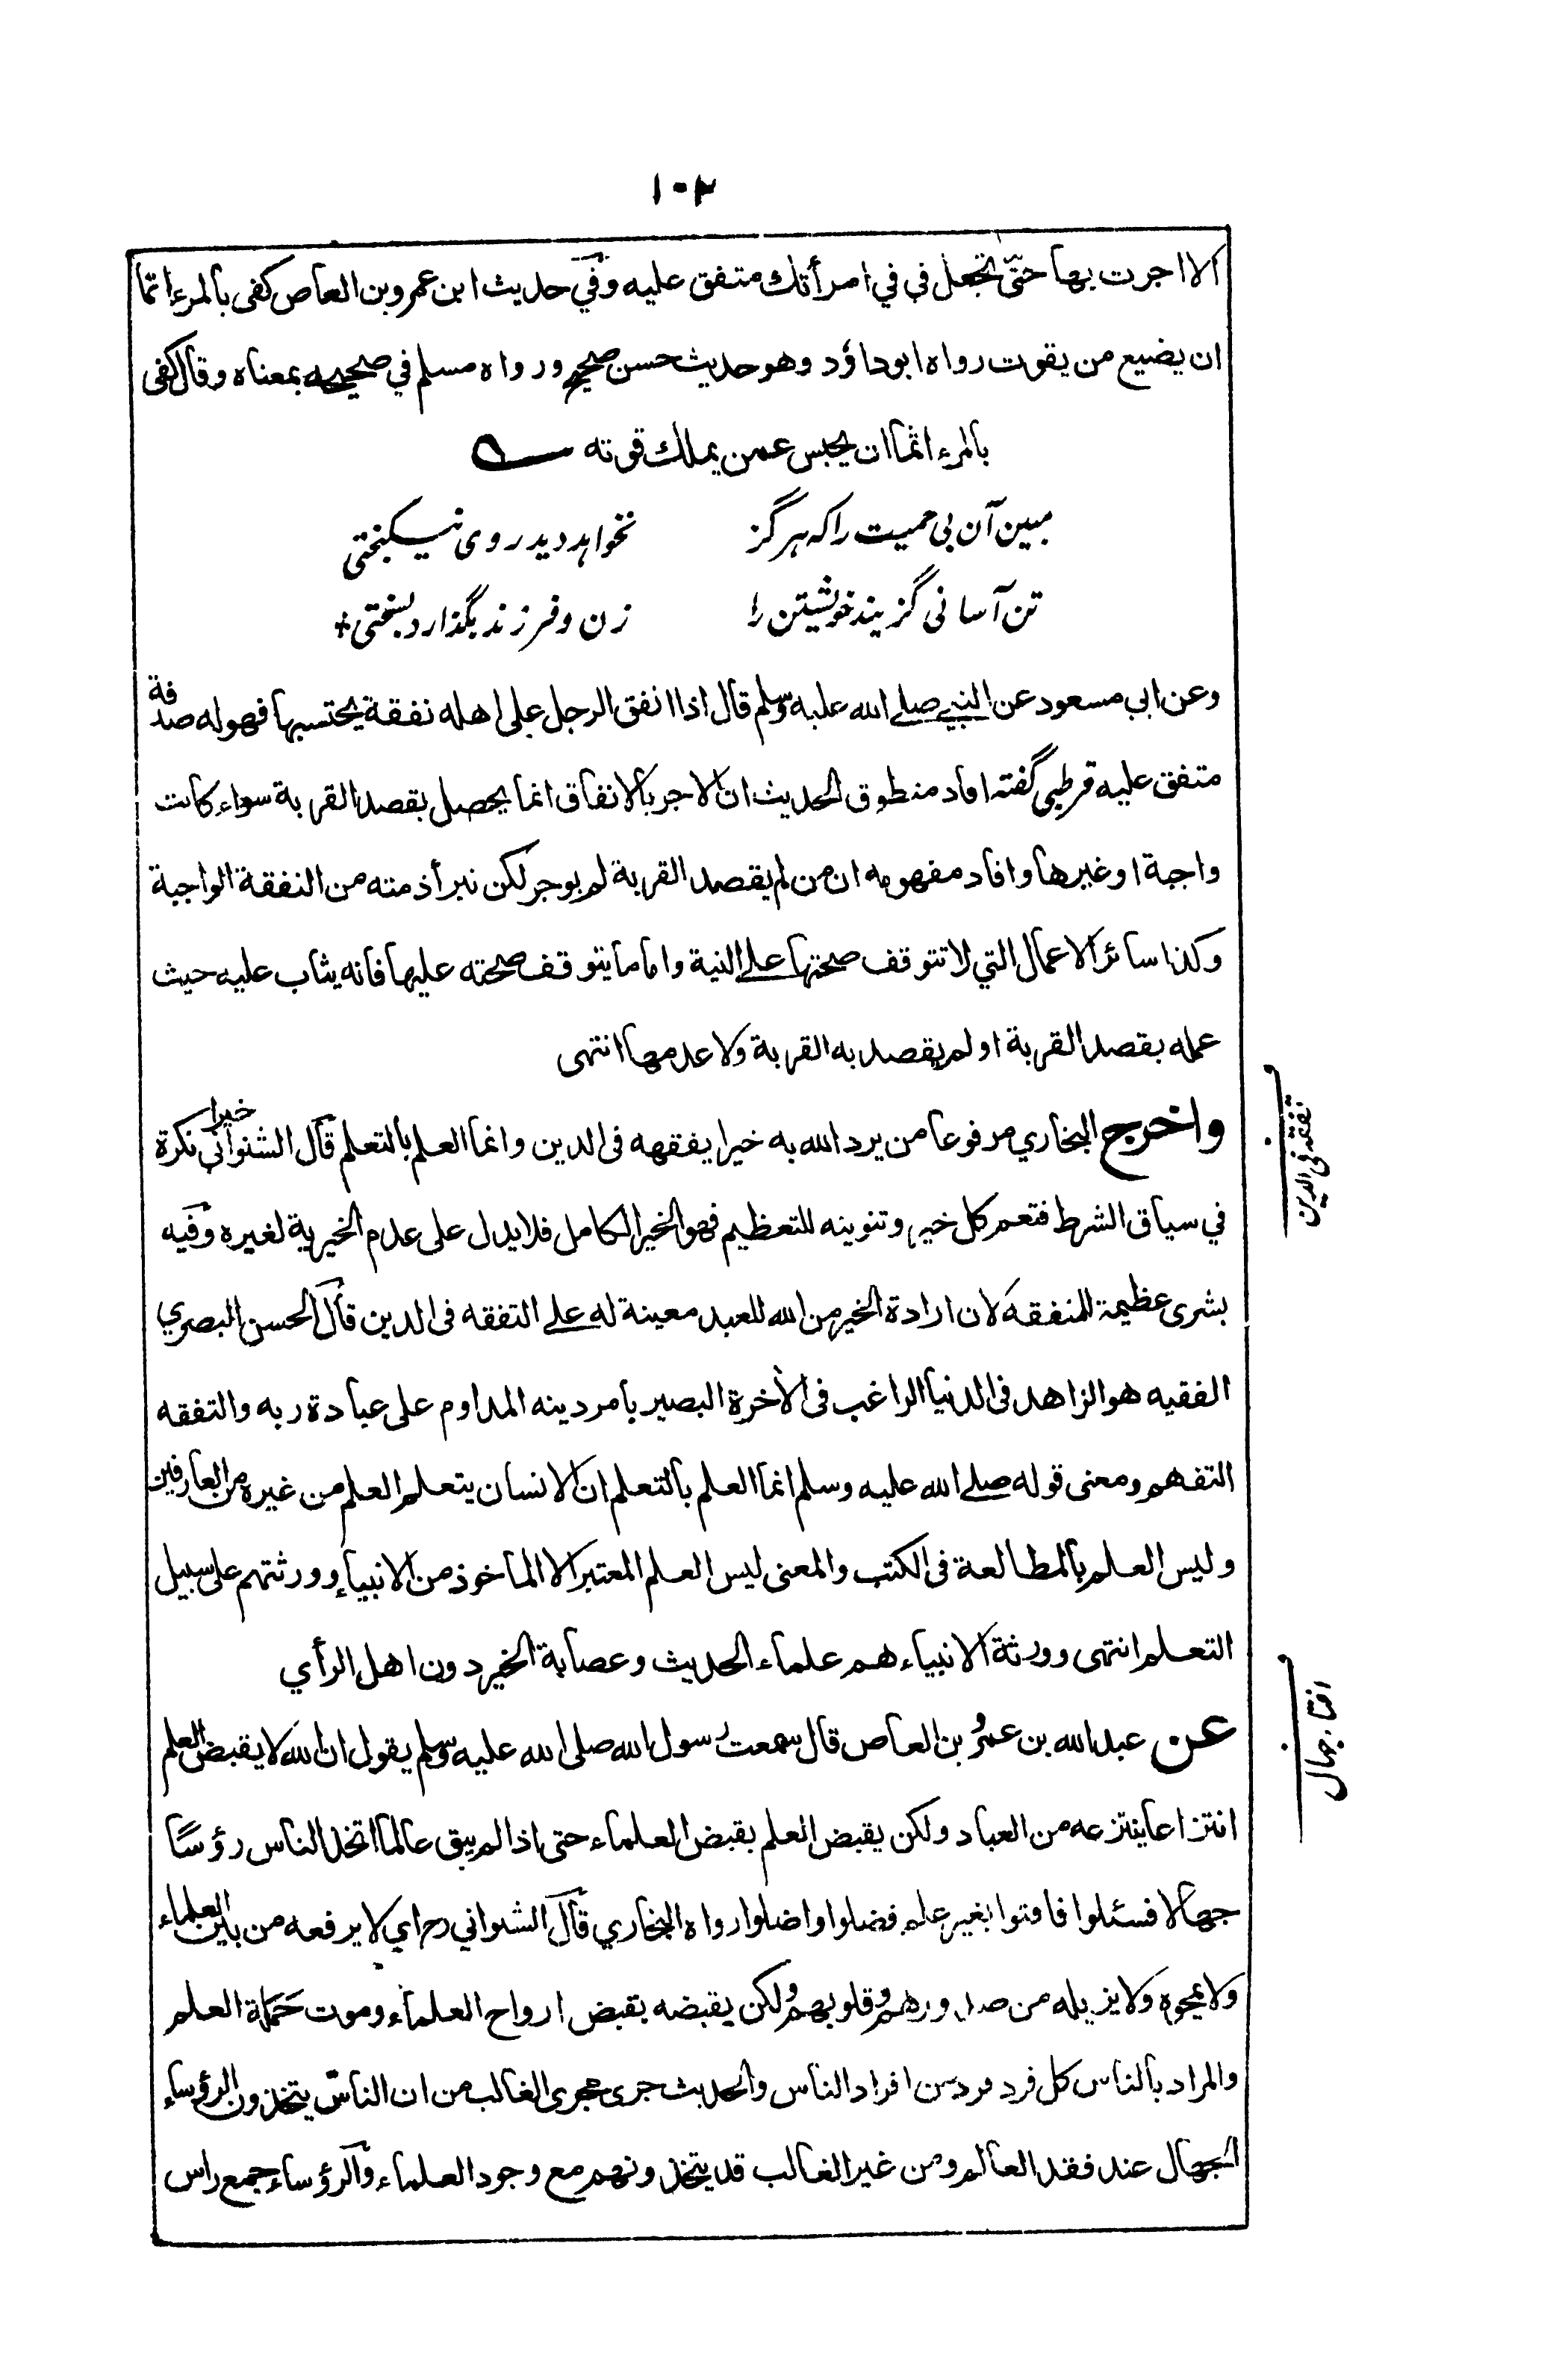 ١٠٢
الا اجرت بها حتّى تجعل في في امرأتك متفق عليه وفي حديث ابن عمرو بن العاص كفى بالمرء اثما
ان يضيع من يقوت رواه ابوداؤد وهو حديث حسن صحيح ورواه مسلم في صحيحه بمعناه وقال كفى
بالمرء اثما ان يحبس عمن يملك قوته
مبين آن بی حمیت را که هرگز نخواهد دید روی نیکبختی
تن آسانی گزیند خویشتن را زن و فرزند بگذارد بسختی
وعن ابي مسعود عن النبي صلے الله عليه وسلم قال اذا انفق الرجل على اهله نفقة يحتسبها فهو له صدقة
متفق عليه قرطبی گفته افاد منطوق الحديث ان الاجر بالانفاق انما يحصل بقصد القربة سواء كانت
واجبة او غيرها وافاد مفهومه ان من لم يقصد القربة لم يوجر لكن تبرأ ذمته من النفقة الواجبة
وكذا سائر الاعمال التي لا تتوقف صحتها علے النية واما ما يتوقف صحته عليها فانه يثاب عليه حيث
عمله بقصد القربة او لم يقصد به القربة ولا عدمها انتهى
واخرج البخاري مرفوعا من يرد الله به خيرا يفقهه فى الدين وانما العلم بالتعلم قال الشنواني خيرا نكرة
في سياق الشرط فتعم كل خير وتنوينه للتعظيم فهو الخير الكامل فلا يدل على عدم الخيرية لغيره وفيه
بشرى عظيمة للمتفقه لان ارادة الخير من الله للعبد معينة له علے التفقه فى الدين قال الحسن البصري
الفقيه هو الزاهد فى الدنيا الراغب فى الأخرة البصير بامر دينه المداوم على عبادة ربه والتفقه
التفهم ومعنى قوله صلے الله عليه وسلم انما العلم بالتعلم ان الانسان يتعلم العلم من غيره من العارفين
وليس العلم بالمطالعة فى الكتب والمعنى ليس العلم المعتبر الا الماخوذ من الانبياء وورثتهم على سبيل
التعلم انتهى وورثة الانبياء هم علماء الحديث وعصابة الخير دون اهل الرأي
عن عبد الله بن عمرو بن العاص قال سمعت رسول الله صلى الله عليه وسلم يقول ان الله لا يقبض العلم
انتزاعا ينتزعه من العباد ولكن يقبض العلم بقبض العلماء حتى اذا لم يبق عالما اتخذ الناس رؤسًا
جهالا فسئلوا فافتوا بغير علم فضلوا واضلوا رواه البخاري قال الشنواني رح اي لا يرفعه من بين العلماء
ولا يمحوه ولا يزيله من صدورهم وقلوبهم ولكن يقبضه بقبض ارواح العلماء وموت حَمَلة العلم
والمراد بالناس كل فرد فرد من افراد الناس والحديث جرى مجرى الغالب من ان الناس يتخذون الرؤساء
الجهال عند فقد العالم ومن غير الغالب قد يتخذونهم مع وجود العلماء والرؤساء جمع راس
تفقه فى الدين
افتاء جهال